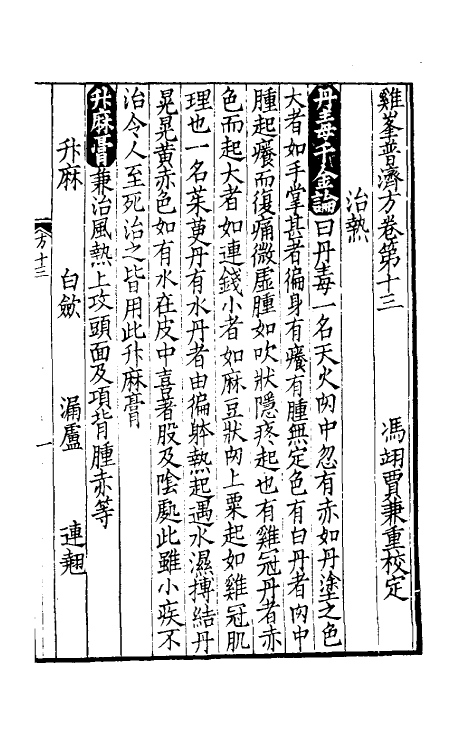 雞峯普濟方卷第十三　馮翊賈兼重校定
治熱
丹毒千金論曰丹毒一名天火肉中忽有赤如丹塗之色
大者如手掌甚者徧身有癢有腫無定色有白丹者肉中
腫起癢而復痛微虛腫如吹狀隱疼起也有雞冠丹者赤
色而起大者如連錢小者如麻豆狀肉上粟起如雞冠肌
理也一名茱萸丹有水丹者由徧躰熱起遇水濕搏結丹
晃晃黃赤色如有水在皮中喜著股及陰處此雖小疾不
治令人至死治之皆用此升麻膏
升麻膏兼治風熱上攻頭面及項背腫赤等
升麻　白歛　漏盧　連翹
方十三　一